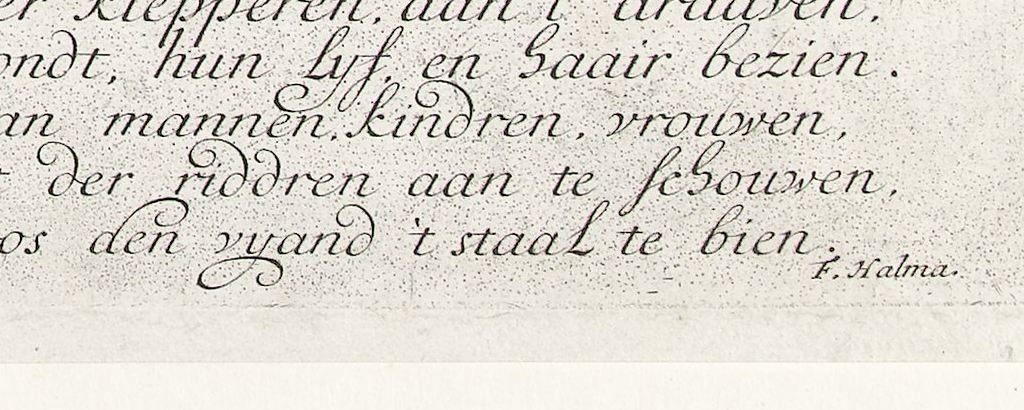 er klepperen, aan 't draaven,
ondt, hun lyf, en haair bezien.
an mannen, kindren, vrouwen,
t der riddren aan te schouwen,
os den vyand 't staal te bien.
F. Halma.